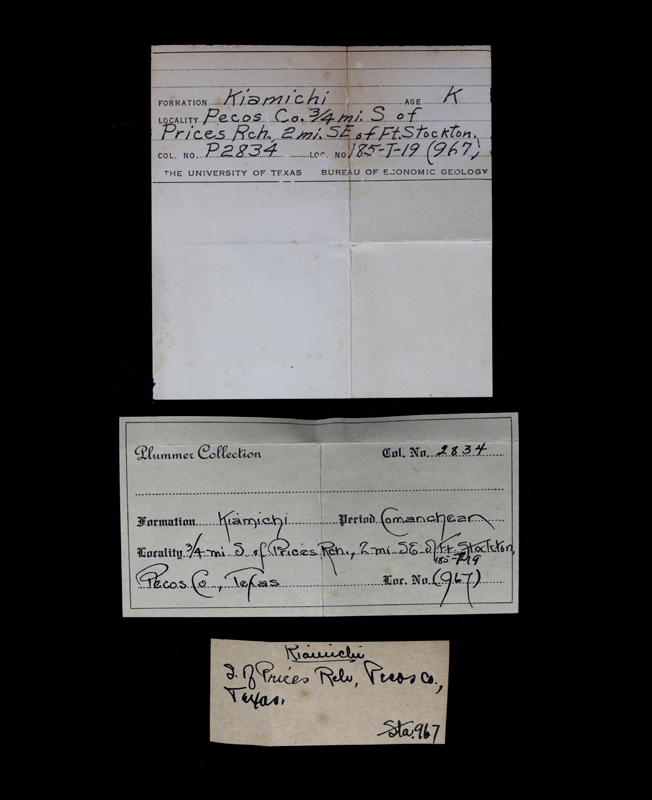 FORMATION Kiamichi AGE K
LOCALITY Pecos Co. 3/4 mi. S of
Prices Rch. 2 mi. SE of Ft. Stockton.
COL. NO. P2834 LOC. NO. 185-T-19 (967)
THE UNIVERSITY OF TEXAS BUREAU OF ECONOMIC GEOLOGY
Plummer Collection Col. No. 2834
Formation Kiamichi Period Comanchean
Locality 3/4 mi S of Prices Rch., 2 mi SE of Ft. Stockton,
185-T-19
Pecos Co., Texas Loc. No. (967)
Kiamichi
S. of Prices Rch, Pecos Co.,
Texas.
Sta. 967